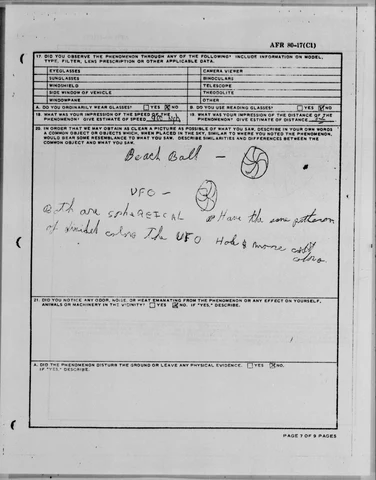 AFR 80-17(C1)
17. DID YOU OBSERVE THE PHENOMENON THROUGH ANY OF THE FOLLOWING? INCLUDE INFORMATION ON MODEL, TYPE, FILTER, LENS PRESCRIPTION OR OTHER APPLICABLE DATA.
EYEGLASSES CAMERA VIEWER
SUNGLASSES BINOCULARS
WINDSHIELD TELESCOPE
SIDE WINDOW OF VEHICLE THEODOLITE
WINDOWPANE OTHER
A. DO YOU ORDINARILY WEAR GLASSES? YES NO B. DO YOU USE READING GLASSES? YES NO
18. WHAT WAS YOUR IMPRESSION OF THE SPEED OF THE PHENOMENON? GIVE ESTIMATE OF SPEED
19. WHAT WAS YOUR IMPRESSION OF THE DISTANCE OF THE PHENOMENON? GIVE ESTIMATE OF DISTANCE
20. IN ORDER THAT WE MAY OBTAIN AS CLEAR A PICTURE AS POSSIBLE OF WHAT YOU SAW, DESCRIBE IN YOUR OWN WORDS
A COMMON OBJECT OR OBJECTS WHICH, WHEN PLACED IN THE SKY, SIMILAR TO WHERE YOU NOTED THE PHENOMENON,
WOULD BEAR SOME RESEMBLANCE TO WHAT YOU SAW. DESCRIBE SIMILARITIES AND DIFFERENCES BETWEEN THE
COMMON OBJECT AND WHAT YOU SAW.
Beach Ball -
UFO
Both are SPHERICAL Have the same
of colors The UFO Had more
colors
21. DID YOU NOTICE ANY ODOR, NOISE, OR HEAT EMANATING FROM THE PHENOMENON OR ANY EFFECT ON YOURSELF,
ANIMALS OR MACHINERY IN THE VICINITY? YES NO. IF "YES," DESCRIBE.
A. DID THE PHENOMENON DISTURB THE GROUND OR LEAVE ANY PHYSICAL EVIDENCE. YES NO.
IF "YES," DESCRIBE.
PAGE 7 OF 9 PAGES